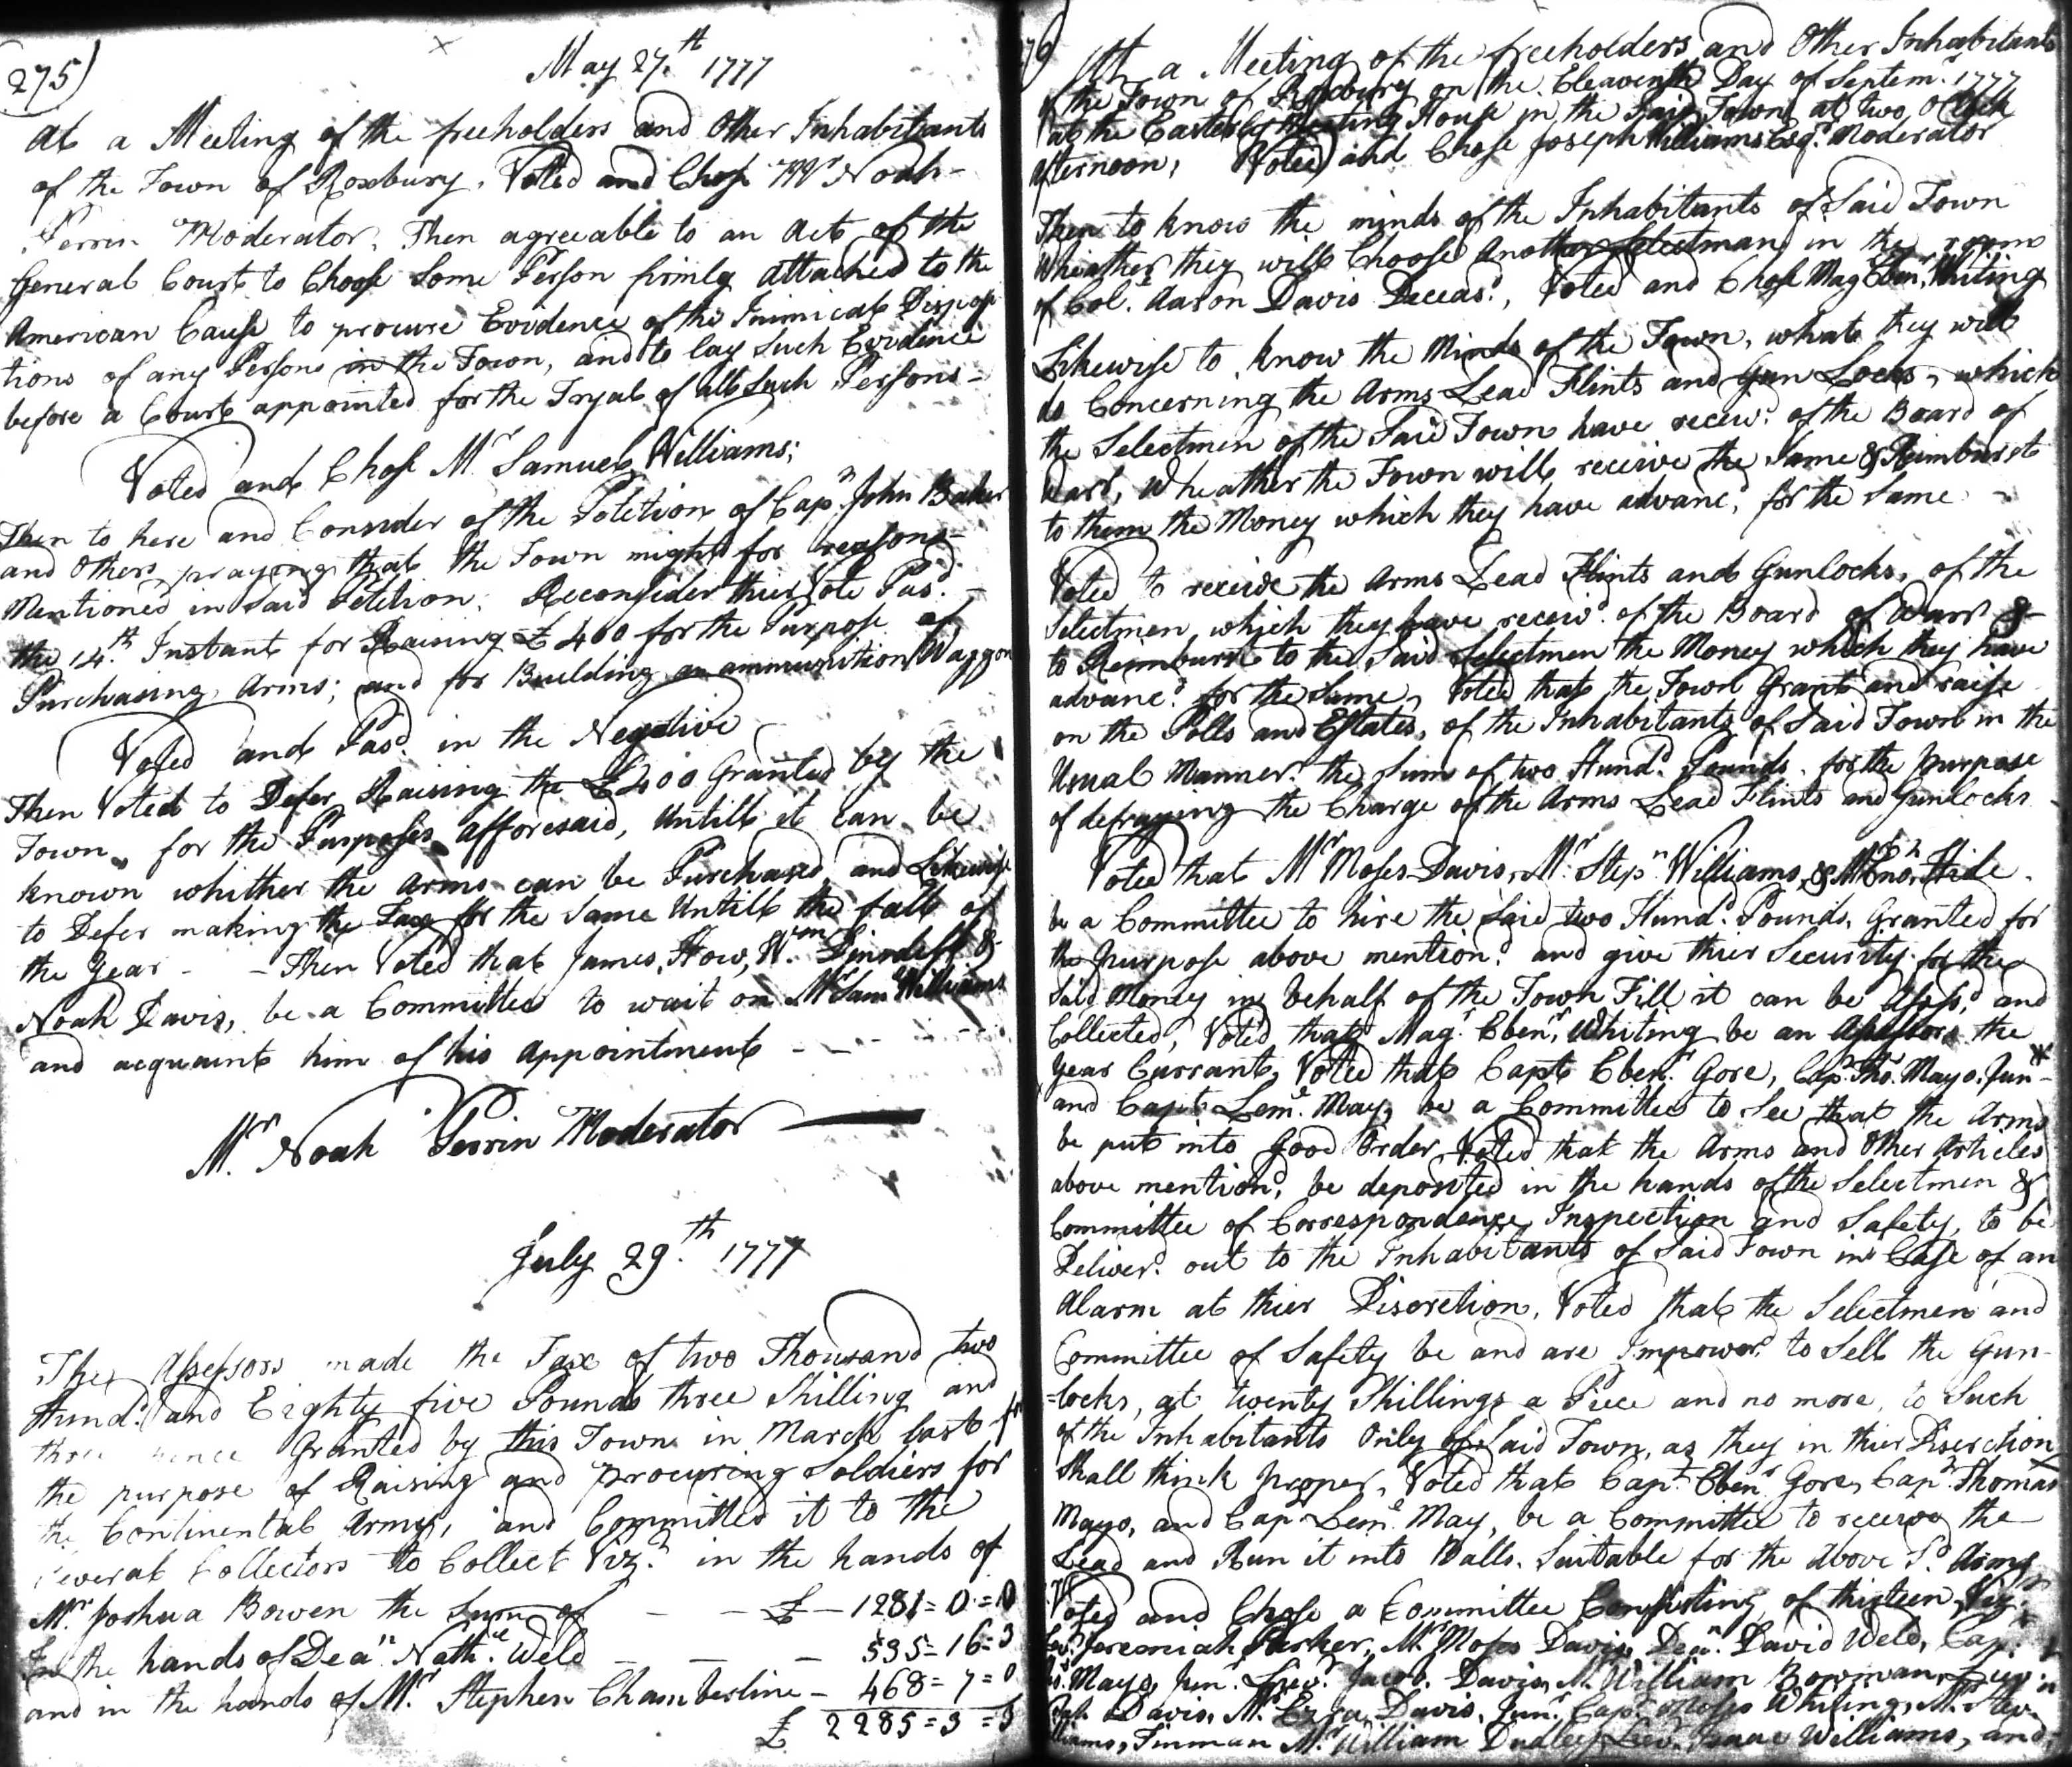 275)
May 27.th 1777
At a Meeting of the freeholders and Other Inhabitants
of the Town of Roxbury, Voted and Chose Mr Noah
Perrin Moderator. Then agreeable to an Act of the
General Court to Choose Some Person firmly attached to the
American Cause to procure Evidence of the Inimical Disposi
tions of any Persons in the Town, and to lay Such Evidence
before a Court appointed for the Tryal of all Such Persons-
Voted and Chose Mr Samuel Williams;
Then to here and Consider of the Petition of Capn. John Baker
and Others praying that the Town might for reasons-
Mentioned in said Petition. Reconsider thier Vote Pasd.
the 14.th Instant for Raising £400 for the Purpose of
Purchasing Arms; and for Building an ammunition Waggon
Voted and Pasd. in the Negative
Then Voted to Defer Raising the £400 Granted by the
Town, for the Purposes afforesaid, Untill it can be
known whither the Arms can be Purchased, and Likewise
to Defer making the Tax for the Same Untill the fall of
the Year - - Then Voted that James, How, Wm &
Noah Davis, be a Committee to wait on Mr Sam Williams
and acquaint him of his appointment - - - -
Mr. Noah Perrin Moderator
July 29.th 1777
The Assessors made the Tax of two Thousand two
Hundd. and Eighty five Pounds three Shilling and
three pence Granted by this Town in March last for
the purpose of Raising and procuring Soldiers for
the Continental Army, and Committed it to the
several Collectors to Collect Vizt. in the hands of
Mr Joshua Bowen the Sum of - - £ - 1281=0=0
In the hands of Dean Nathl. Weld - - - 535=16=3
and in the hands of Mr. Stephen Chamberline - 468=7=0
£ 2285=3=3
276)
Att a Meeting of the freeholders and Other Inhabitants
of the Town of Roxbury on the Eleaventh Day of Septemr. 1777
at the Easterly Meeting House in the Said Town at two O Clock
afternoon, Voted and Chose Joseph Williams Esqr. Moderator
Then to know the minds of the Inhabitants of Said Town
Wheather they will Choose Another Selectman in the room
of Col. Aaron Davis Deceasd., Voted and Chose Mag Ebenr. Whiting
Likewise to know the Minds of the Town, what they will
do Concerning the Arms Lead Flints and Gun Locks, which
the Selectmen of the Said Town have receivd. of the Board of
Warr, Wheather the Town will receive the Same & Reimburst
to them the Money which they have advancd. for the Same -
Voted to receive the Arms Lead Flints and Gunlocks, of the
Selectmen which they have receivd. of the Board of Warr &
to Reimburst to the Said Selectmen the Money which they have
advancd. for the Same, Voted that the Town Grant and raise
on the Polls and Estates, of the Inhabitants of Said Town in the
Usual Manner. the Sum of two Hundd. Pounds. for the purpose
of defraying the Charge of the Arms Lead Flints and Gunlocks
Voted that Mr Moses Davis, Mr Stepn Williams, &
be a Committee to hire the Said two Hundd. Pounds, Granted for
the Purpose above mentiond. and give thier Security for the
Said Money in behalf of the Town Till it can be Assessd, and
Collected, Voted that Mag. Ebenr. Whiting be an Assessor the
Year Currant, Voted that Capt Ebenr. Gore, Capt. Tho. Mayo. Junr
and Capt. Leml. May, be a Committee to See that the Arms
be put into Good Order Voted that the Arms and Other Articles
above mentiond, be deposited in the hands of the Selectmen &
Committee of Correspondence, Inspection and Safety, to be
Deliverd. out to the Inhabitants of Said Town in Case of an
Alarm at thier Discretion, Voted that the Selectmen and
Committee of Safety be and are Impowerd to Sell the Gun-
=locks, at twenty Shillings a Piece and no more, to Such
of the Inhabitants Only of Said Town, as they in thier Discretion
Shall think proper, Voted that Capt. Ebenr Gore, Capt. Thomas
Mayo, and Capt Leml. May, be a Committee to receive the
Lead and Run it into Balls. Suitable for the Above Sd. Arms
Voted and Chose a Committee Consisting of thirteen Viz.
Jeremiah Parker, Mr. Moses Davis, Dean. David Weld, Capt.
Mayo, Junr. Lieut. Jacob. Davis, Mr. William Bowman,
Davis, Mr. Ezra Davis, Junr. Capt. Moses Whiting, Mr.
Williams, Tinman Mr William Dudley Lieut. Isaac Williams, and